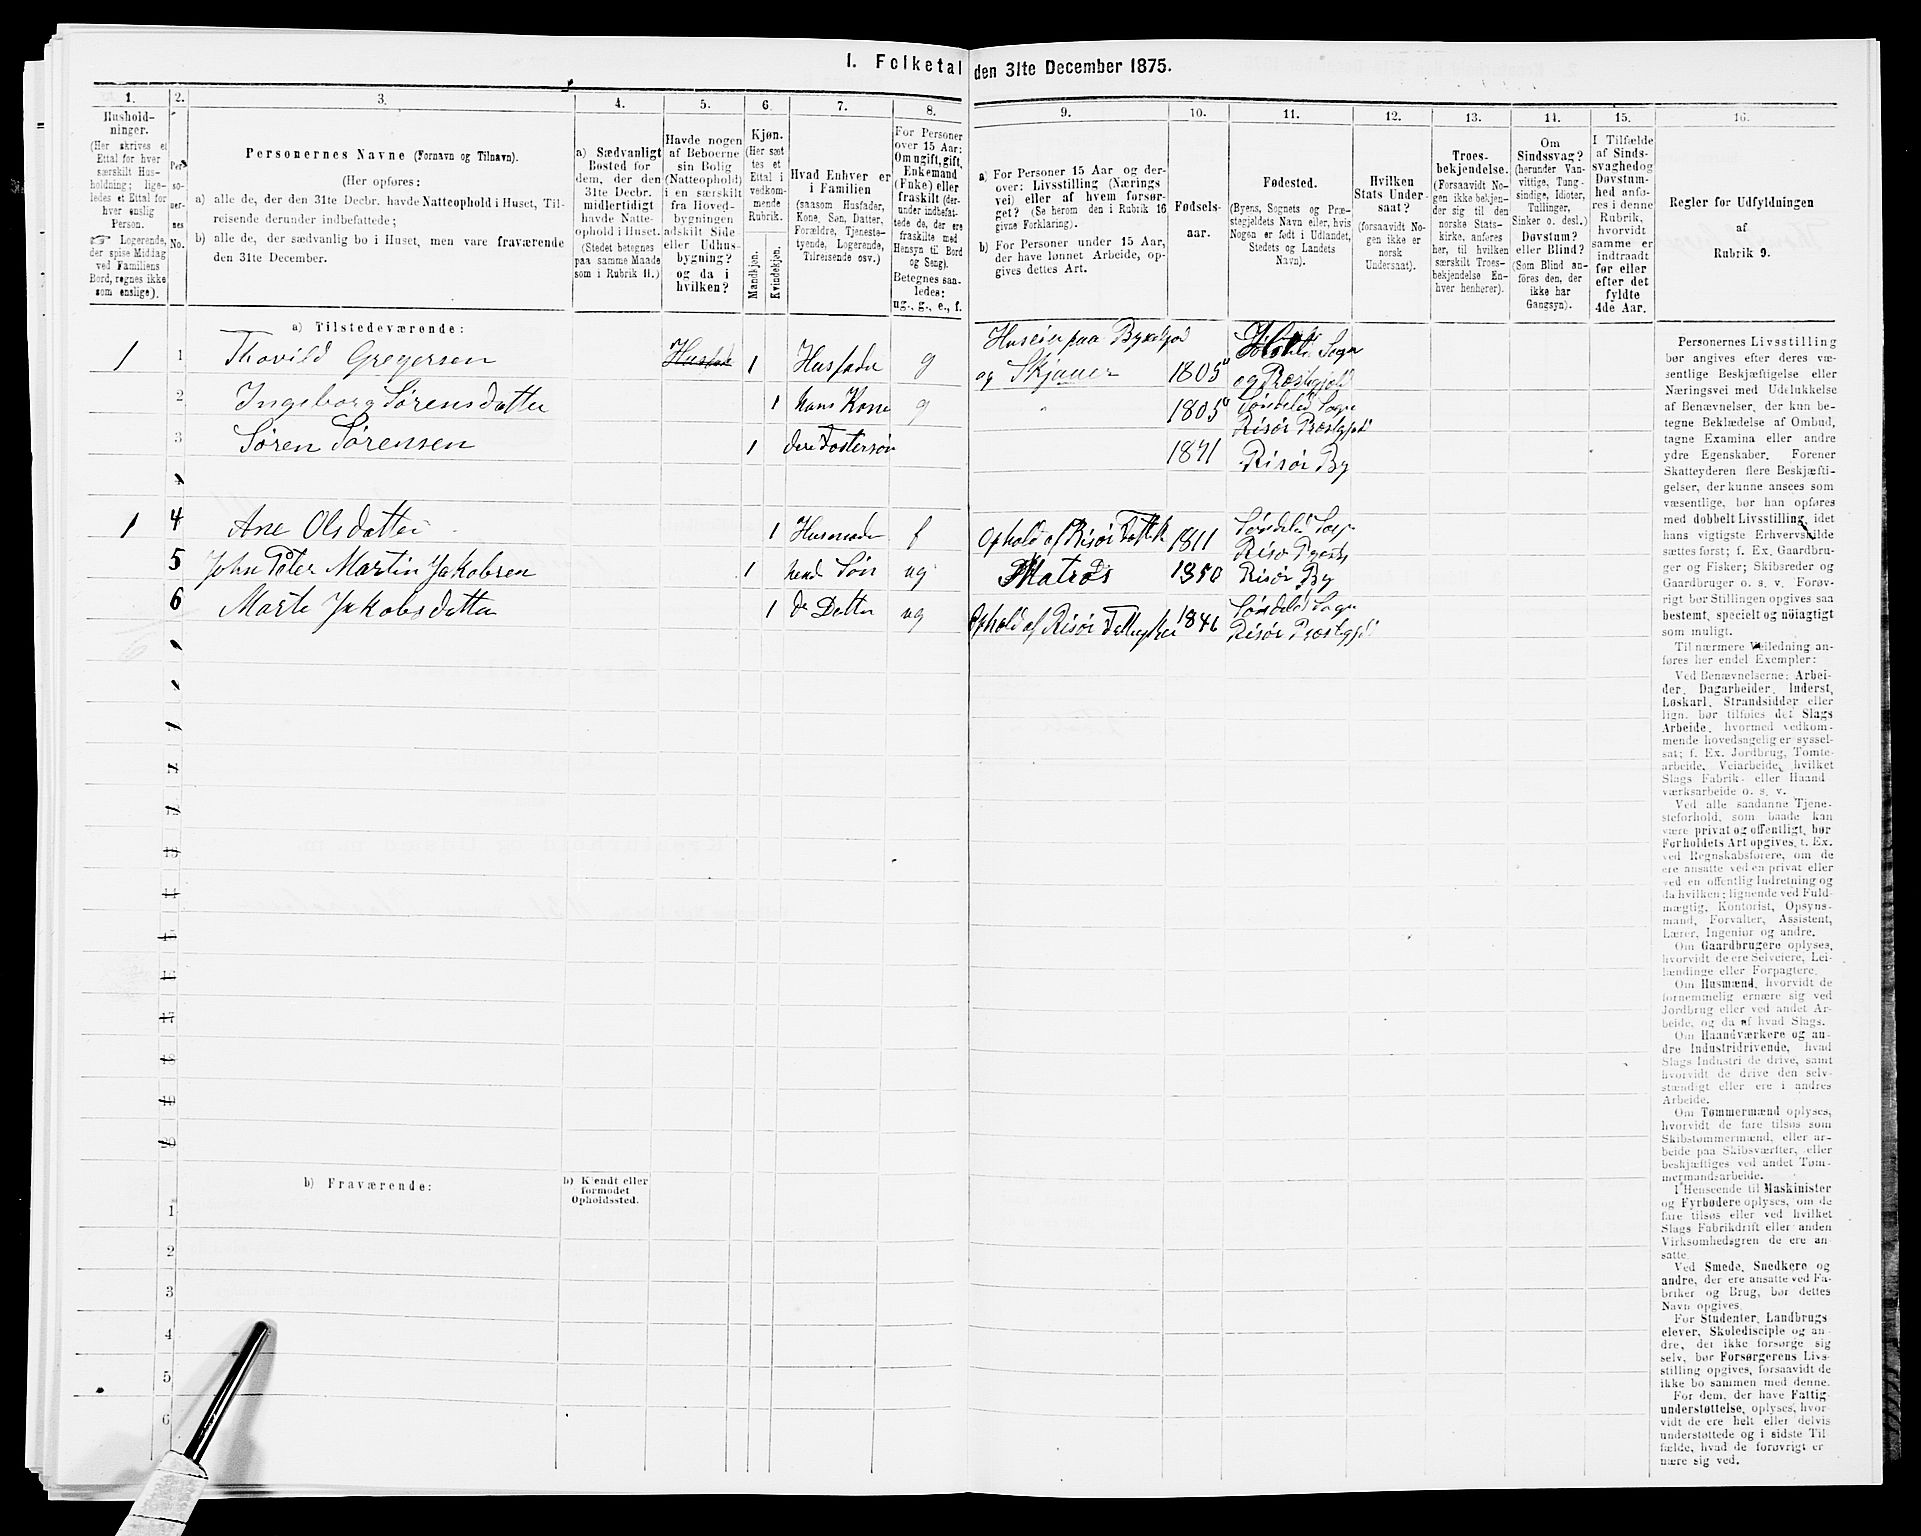 I. Folketal den 31te December 1875.
1. 2. 3. 4. 5. 6. 7. 8. 9. 10. 11. 12. 13. 14. 15. 16.
Hushold-
ninger.
(Her skrives et
Ettal for hver
særskilt Hus-
holdning; lige-
ledes et Ettal for
hver enslig
Person.
☞ Logerende,
der spise Middag
ved Familiens
Bord, regnes ikke
som enslige).
Per-
so-
ner-
nes
No.
Personernes Navne (Fornavn og Tilnavn).
(Her opføres:
a) alle de, der den 31te Decbr. havde Natteophold i Huset, Til-
reisende derunder indbefattede;
b) alle de, der sædvanlig bo i Huset, men vare fraværende
den 31te December.
a) Sædvanligt
Bosted for
dem, der den
31te Decbr.
midlertidigt
havde Natte-
ophold i Huset.
(Stedet betegnes
paa samme Maade
som i Rubrik 11.)
Havde nogen
af Beboerne
sin Bolig
(Natteophold)
i en særskilt
fra Hoved-
bygningen
adskilt Side-
eller Udhus-
bygning?
og da i
hvilken?
Kjøn.
(Her sæt-
tes et
Ettal i
vedkom-
mende
Rubrik.
Mandkjøn.
Kvindekjøn.
Hvad Enhver er
i Familien
(saasom Husfader,
Kone, Søn, Datter,
Forældre, Tjeneste-
tyende, Logerende,
Tilreisende osv.)
For Personer
over 15 Aar:
Om ugift, gift,
Enkemand
(Enke) eller
fraskilt (der-
under indbefat-
tede de, der ere
fraskilte med
Hensyn til Bord
og Seng).
Betegnes saa-
ledes:
ug., g., e., f.
a) For Personer 15 Aar og der-
over: Livsstilling (Nærings
vei) eller af hvem forsør-
get? (Se herom den i Rubrik 16
givne Forklaring).
b) For Personer under 15 Aar,
der have lønnet Arbeide, op-
gives dettes Art.
Fødsels-
aar.
Fødested.
(Byens, Sognets og Præ-
stegjeldets Navn eller, hvis
Nogen er født i Udlandet,
Stedets og Landets
Navn).
Hvilken
Stats Under-
saat?
(forsaavidt No-
gen ikke er
norsk
Undersaat).
Troes-
bekjendelse.
(Forsaavidt No-
gen ikke bekjen-
der sig til den
norske Stats-
kirke, anføres
her, til hvilken
særskilt Troes-
bekjendelse En-
hver henhører).
Om
Sindssvag?
(herunder Van-
vittige, Tung-
sindige, Idioter,
Tullinger,
Sinker o. desl.)
Døvstum?
eller Blind?
(Som Blind an-
føres den, der
ikke har
Gangsyn).
I Tilfælde
af Sinds-
svaghed og
Døvstum-
hed anfø-
res i denne
Rubrik,
hvorvidt
samme er
indtraadt
før eller
efter det
fyldte
4de Aar.
Regler for Udfyldningen
af
Rubrik 9.
a) Tilstedeværende:
1 1 Thovild Gregersen Husfad 1 Husfader g Huseier paa Bygselgod og Skjauer 1805 Sogn og Præstegjeld
2 Ingeborg Sørensdatter 1 hans Kone g " 1805 Søndeled Sogn Risør Præstegjeld
3 Søren Sørensen 1 dere Fostersøn 1871 Risør By
1 4 Ane Olsdatter 1 Husmoder f Ophold af Risør Fattik 1811 Søndeled Sogn Risør
5 John Peter Martin Jakobsen 1 hend Søn ug Matros 1850 Risør By
6 Marte Jakobsdatter 1 do Datter ug Ophold af Risør 1846 Søndeled Sogn Risør Præstegjeld
b) Fraværende:
b) Kjendt eller
formodet
Opholdssted.
1
2
3
4
5
6
Personernes Livsstilling
bør angives efter deres væ-
sentlige Beskjæftigelse eller
Næringsvei med Udelukkelse
af Benævnelser, der kun be-
tegne Beklædelse af Ombud,
tagne Examina eller andre
ydre Egenskaber. Forener
Skatteyderen flere Beskjæfti-
gelser, der kunne ansees som
væsentlige, bør han opføres
med dobbelt Livsstilling, idet
hans vigtigste Erhvervskilde
sættes først; f. Ex. Gaardbru-
ger og Fisker; Skibsreder og
Gaardbruger o. s. v. Forøv-
rigt bør Stillingen opgives saa
bestemt, specielt og nöiagtigt
som muligt.
Til nærmere Veiledning an-
føres her endel Exempler:
Ved Benævnelserne: Arbei-
der, Dagarbeider, Inderst,
Løskarl, Strandsidder eller
lign. bør tilføies det Slags
Arbeide, hvormed vedkom-
mende hovedsagelig er syssel-
sat; f. Ex. Jordbrug, Tomte-
arbeide, Veiarbeide, hvilket
Slags Fabrik- eller Haand-
værksarbeide o. s. v.
Ved alle saadanne Tjene-
steforhold, som baade kan
være privat og offentligt, bør
Forholdets Art opgives, f. Ex.
ved Regnskabsførere, om de
ere ansatte ved en privat eller
ved en offentlig Indretning og
da hvilken; lignende ved Fuld-
mægtig, Kontorist, Opsyns-
mand, Forvalter, Assistent,
Lærer, Ingeniør og andre.
Om Gaardbrugere oplyses,
hvorvidt de ere Selveiere, Lei-
lændinge eller Forpagtere.
Om Husmænd, hvorvidt de
fornemmelig ernære sig ved
Jordbrug eller ved andet Ar-
beide, og da af hvad Slags.
Om Haandværkere og an-
dre Industridrivende, hvad
Slags Industri de drive, samt
hvorvidt de drive den selv-
stændigt eller ere i andres
Arbeide.
Om Tømmermænd oplyses,
hvorvidt de fare tilsøs som
Skibstømmermænd, eller ar-
beide paa Skibsværfter, eller
beskjæftiges ved andet Tøm-
mermandsarbeide.
I Henseende til Maskinister
og Fyrbødere oplyses, om de
fare tilsøs eller ved hvilket
Slags Fabrikdrift eller anden
Virksomhedsgren de ere an-
satte.
Ved Smede, Snedkere og
andre, der ere ansatte ved Fa-
briker og Brug, bør dettes
Navn opgives.
For Studenter, Landbrugs
elever, Skoledisciple og an-
dre, det ikke forsørge sig
selv, bør Forsørgerens Livs-
stilling opgives, forsaavidt de
ikke bo sammen med denne.
For dem, der have Fattig-
understøttelse, oplyses, hvor-
vidt de ere helt eller delvis
understøttede og i sidste Til-
fælde, hvad de forøvrigt er
nære sig ved.